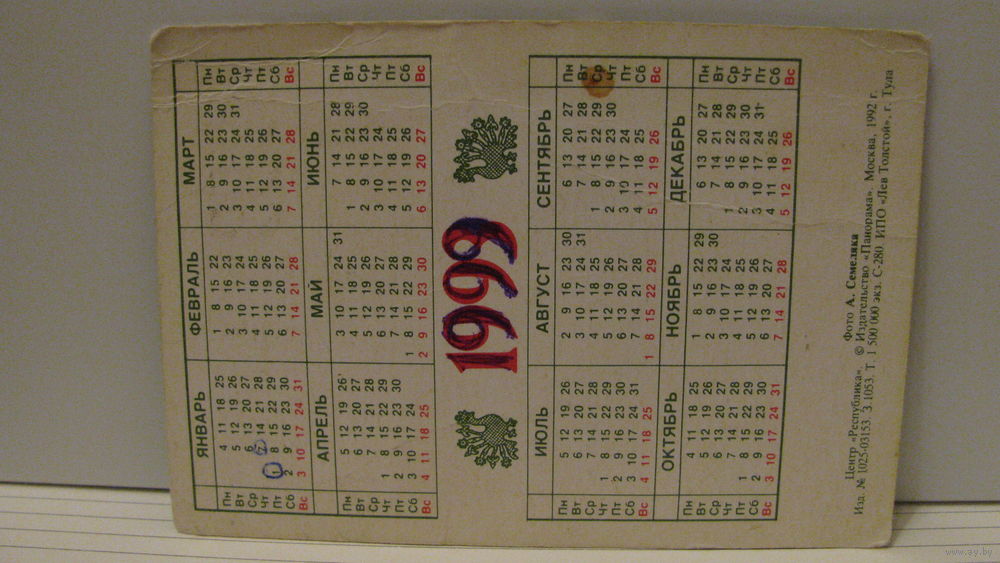 ЯНВАРЬ ФЕВРАЛЬ МАРТ
Пн 4 11 18 25 1 8 15 22 1 8 15 22 29 Пн
Вт 5 12 19 26 2 9 16 23 2 9 16 23 30 Вт
Ср 6 13 20 27 3 10 17 24 3 10 17 24 31 Ср
Чт 7 14 21 28 4 11 18 25 4 11 18 25 Чт
Пт 1 8 15 22 29 5 12 19 26 5 12 19 26 Пт
Сб 2 9 16 23 30 6 13 20 27 6 13 20 27 Сб
Вс 3 10 17 24 31 7 14 21 28 7 14 21 28 Вс
АПРЕЛЬ МАЙ ИЮНЬ
Пн 5 12 19 26 3 10 17 24 31 7 14 21 28 Пн
Вт 6 13 20 27 4 11 18 25 1 8 15 22 29 Вт
Ср 7 14 21 28 5 12 19 26 2 9 16 23 30 Ср
Чт 1 8 15 22 29 6 13 20 27 3 10 17 24 Чт
Пт 2 9 16 23 30 7 14 21 28 4 11 18 25 Пт
Сб 3 10 17 24 1 8 15 22 29 5 12 19 26 Сб
Вс 4 11 18 25 2 9 16 23 30 6 13 20 27 Вс
1999
ИЮЛЬ АВГУСТ СЕНТЯБРЬ
Пн 5 12 19 26 2 9 16 23 30 6 13 20 27 Пн
Вт 6 13 20 27 3 10 17 24 31 7 14 21 28 Вт
Ср 7 14 21 28 4 11 18 25 1 8 15 22 29 Ср
Чт 1 8 15 22 29 5 12 19 26 2 9 16 23 30 Чт
Пт 2 9 16 23 30 6 13 20 27 3 10 17 24 Пт
Сб 3 10 17 24 31 7 14 21 28 4 11 18 25 Сб
Вс 4 11 18 25 1 8 15 22 29 5 12 19 26 Вс
ОКТЯБРЬ НОЯБРЬ ДЕКАБРЬ
Пн 4 11 18 25 1 8 15 22 29 6 13 20 27 Пн
Вт 5 12 19 26 2 9 16 23 30 7 14 21 28 Вт
Ср 6 13 20 27 3 10 17 24 1 8 15 22 29 Ср
Чт 7 14 21 28 4 11 18 25 2 9 16 23 30 Чт
Пт 1 8 15 22 29 5 12 19 26 3 10 17 24 31 Пт
Сб 2 9 16 23 30 6 13 20 27 4 11 18 25 Сб
Вс 3 10 17 24 31 7 14 21 28 5 12 19 26 Вс
Фото А. Семеляка
Центр «Республика». © Издательство «Панорама». Москва, 1992 г.
Изд. № 1025-03153 З.1053. Т. 1 500 000 экз. С-280. ИПО «Лев Толстой», г. Тула
www.ay.by